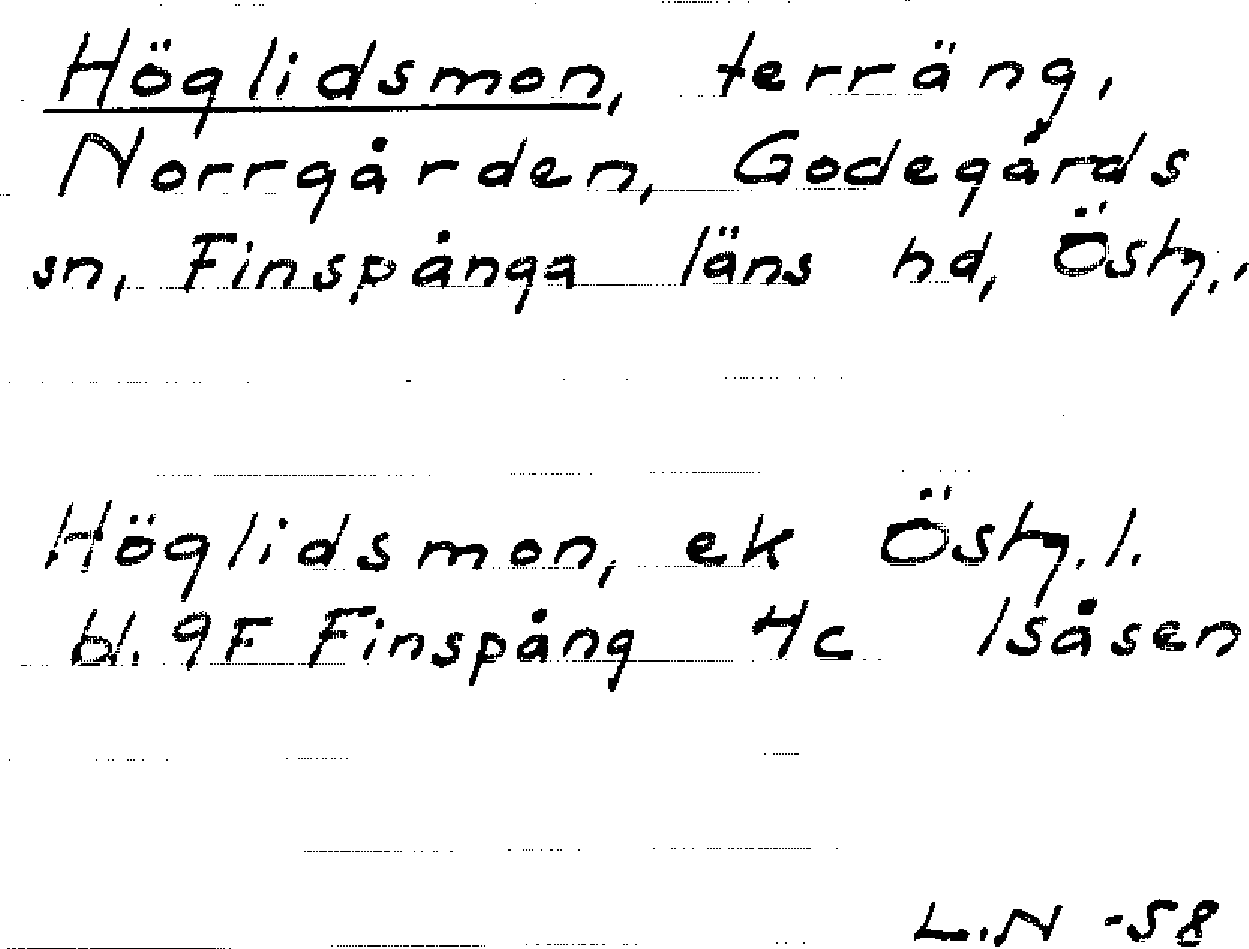 Höglidsmon, terräng,
Norrgården, Godegårds
sn, Finspånga läns hd, Östg.,
Höglidsmon, ek Östg. l.
bl. 9F Finspång 4c Isåsen
L.N -58